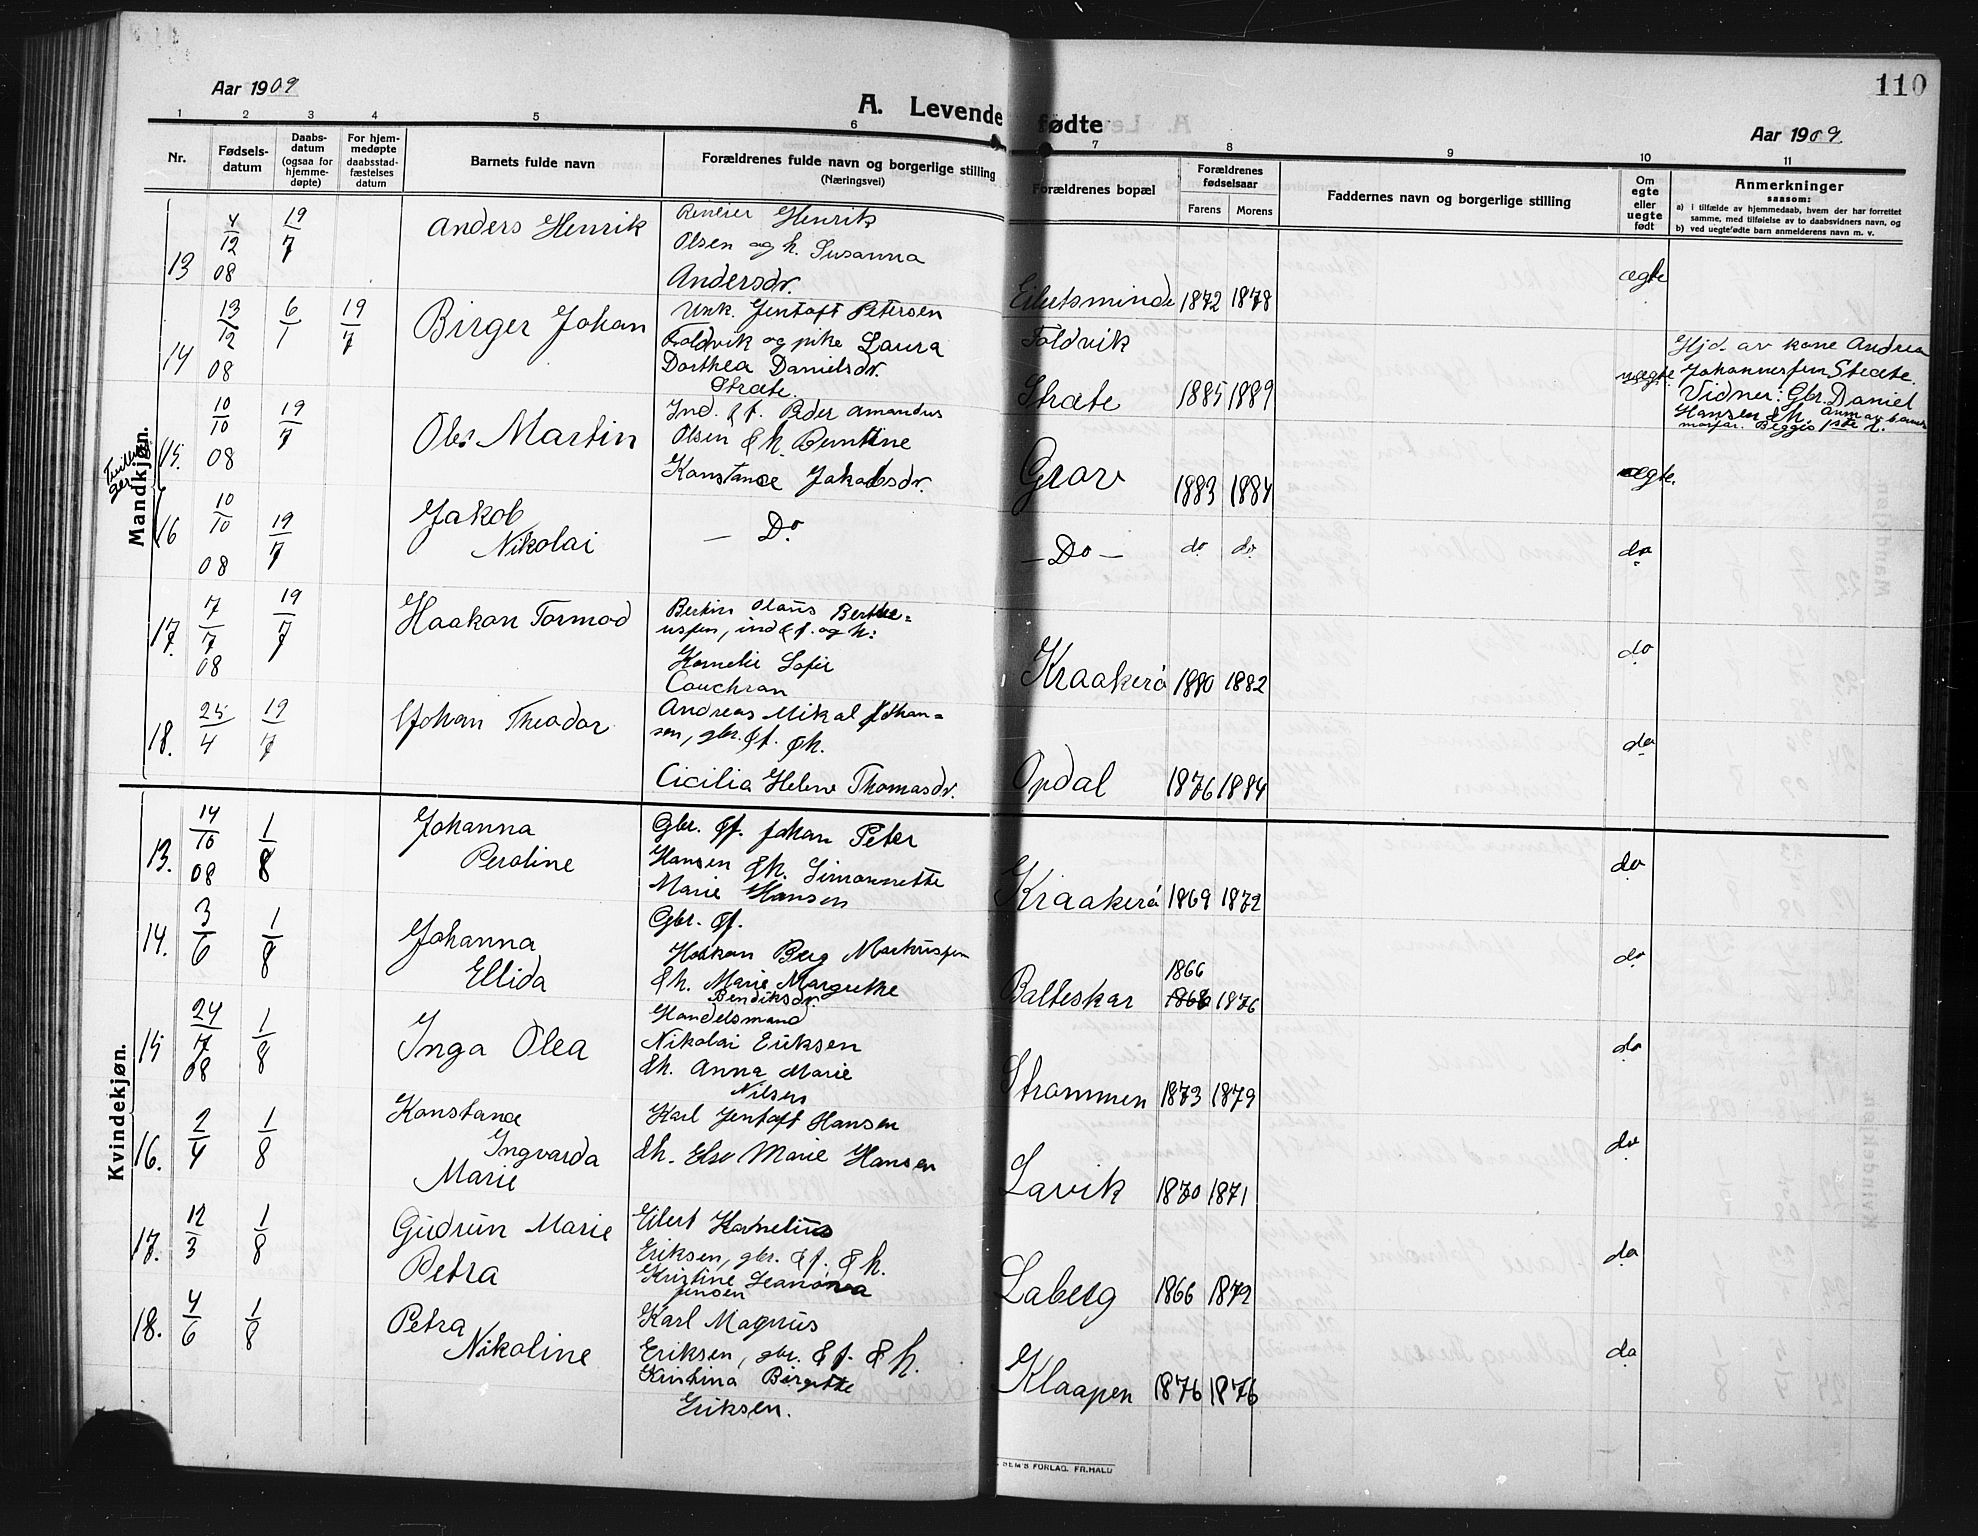 Aar 1909
A. Levende fødte
110
Aar 1909
1 2 3 4 5 6 7 8 9 10 11
Nr.
Fødsels-
datum
Daabs-
datum
(ogsaa for
hjemme-
døpte)
For hjem-
medøpte
daabsstad-
fæstelses
datum
Barnets fulde navn
Forældrenes fulde navn og borgerlige stilling
(Næringsvei)
Forældrenes bopæl
Forældrenes
fødselsaar
Farens Morens
Faddernes navn og borgerlige stilling
Om
egte
eller
uegte
født
Anmerkninger
saasom:
a) i tilfælde av hjemmedaab, hvem der har forrettet
samme, med tilføielse av to daabsvidners navn, og
b) ved uegtefødte barn anmelderens navn m. v.
Mandkjøn.
13 4/12 08 19/7
Anders Henrik
Henrik
Olsen og h. Susanna
Andersdr.
Eilertsminde 1872 1878
ægte
14 13/12 08 6/1 19/7
Birger Johan
Unk. Jentoft Petersen
Foldvik og pike Laura
Dorthea Danielsdr.
Stræte.
Foldvik
Stræte 1885 1889
uægte.
Hjd. av kone Andrea
Johannessen Stræte.
Vidner: Gbr. Daniel
Hansen & h. Anm av barnets
morfar. Begges 1ste
15. 10/10 08 19/7
Ole Martin
Ind. & f. Peder Amandus
Olsen & h. Berntine
Konstance Jakobsdr.
Grov 1883 1884
ægte.
16 10/10 08 19/7
Jakob
Nikolai
— Do
— Do — do do
do
17. 7/7 08 19/7
Haakon Tormod
Bertin Olaus Berthe=
ussen, ind & f. og h:
Kornelie Sofie
Couchran
Kraakerø 1880 1882
do
18. 25/4 19/7
Johan Theodor
Andreas Mikal Johan=
sen, gbr. & f. & h.
Cicilia Helene Thomasdr.
Opdal 1876 1884
do
Kvindekjøn.
13. 14/10 08 1/8
Johanna
Peroline
Gbr. & f. Johan Peter
Hansen & h. Simonnette
Marie Hansen
Kraakerø 1869 1872
do
14. 3/6 1/8
Johanna
Ellida
Gbr. & f.
Haakon Berg Markussen
& h. Marie Margrethe
Bendiksdr.
1866
Balteskar 1868 1876
do
15 24/7 08 1/8
Inga Olea
Handelsmand
Nikolai Eriksen
& h. Anna Marie
Nilsen
Strømmen 1873 1879
do
16. 2/4 1/8
Konstance
Ingvarda
Marie
Karl Jentoft Hansen
& h. Else Marie Hansen
Lavik 1870 1871
do
17. 12/3 1/8
Gudrun Marie
Petra
Eilert Kornelius
Eriksen, gbr. & f. & h.
Kristine Jeanova
Jensen
Laberg 1866 1872
do
18. 4/6 1/8
Petra
Nikoline
Karl Magnus
Eriksen, gbr. & f. & h.
Kristina Birgitte
Eriksen.
Klaapen 1876 1876
do
SEM'S FORLAG. FR.HALD